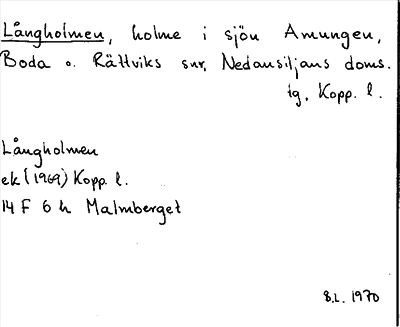 Långholmen, holme i sjön Amungen,
Boda o. Rättviks snr, Nedansiljans doms.
tg, Kopp. l.
Långholmen
ek (1969) Kopp. l.
14 F 6 h Malmberget
8.L. 1970